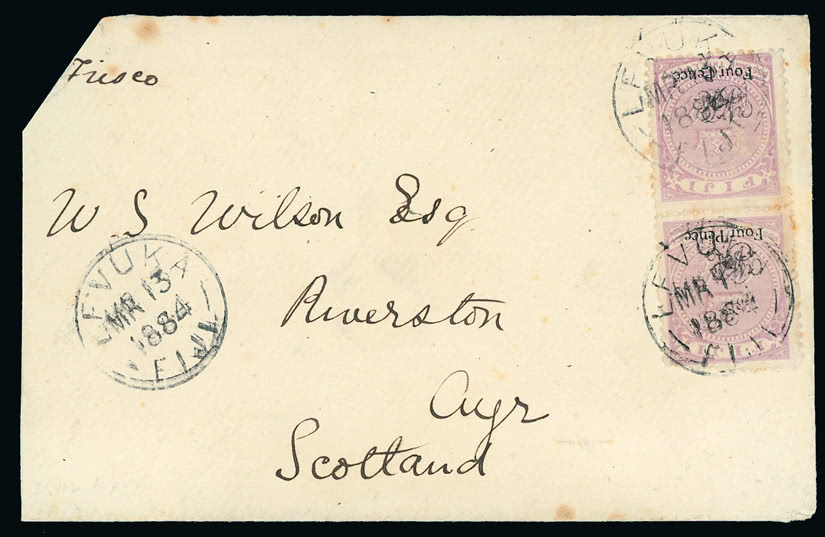 Frisco
W S Wilson Esq.
Riverston
Ayr
Scotland
LEVUKA
MR 13
1884
FIJI
LEVUKA
MR
188
FIJI
Four Pence
FIJI
LEVUKA
MR 13
1884
FIJI
Four Pence